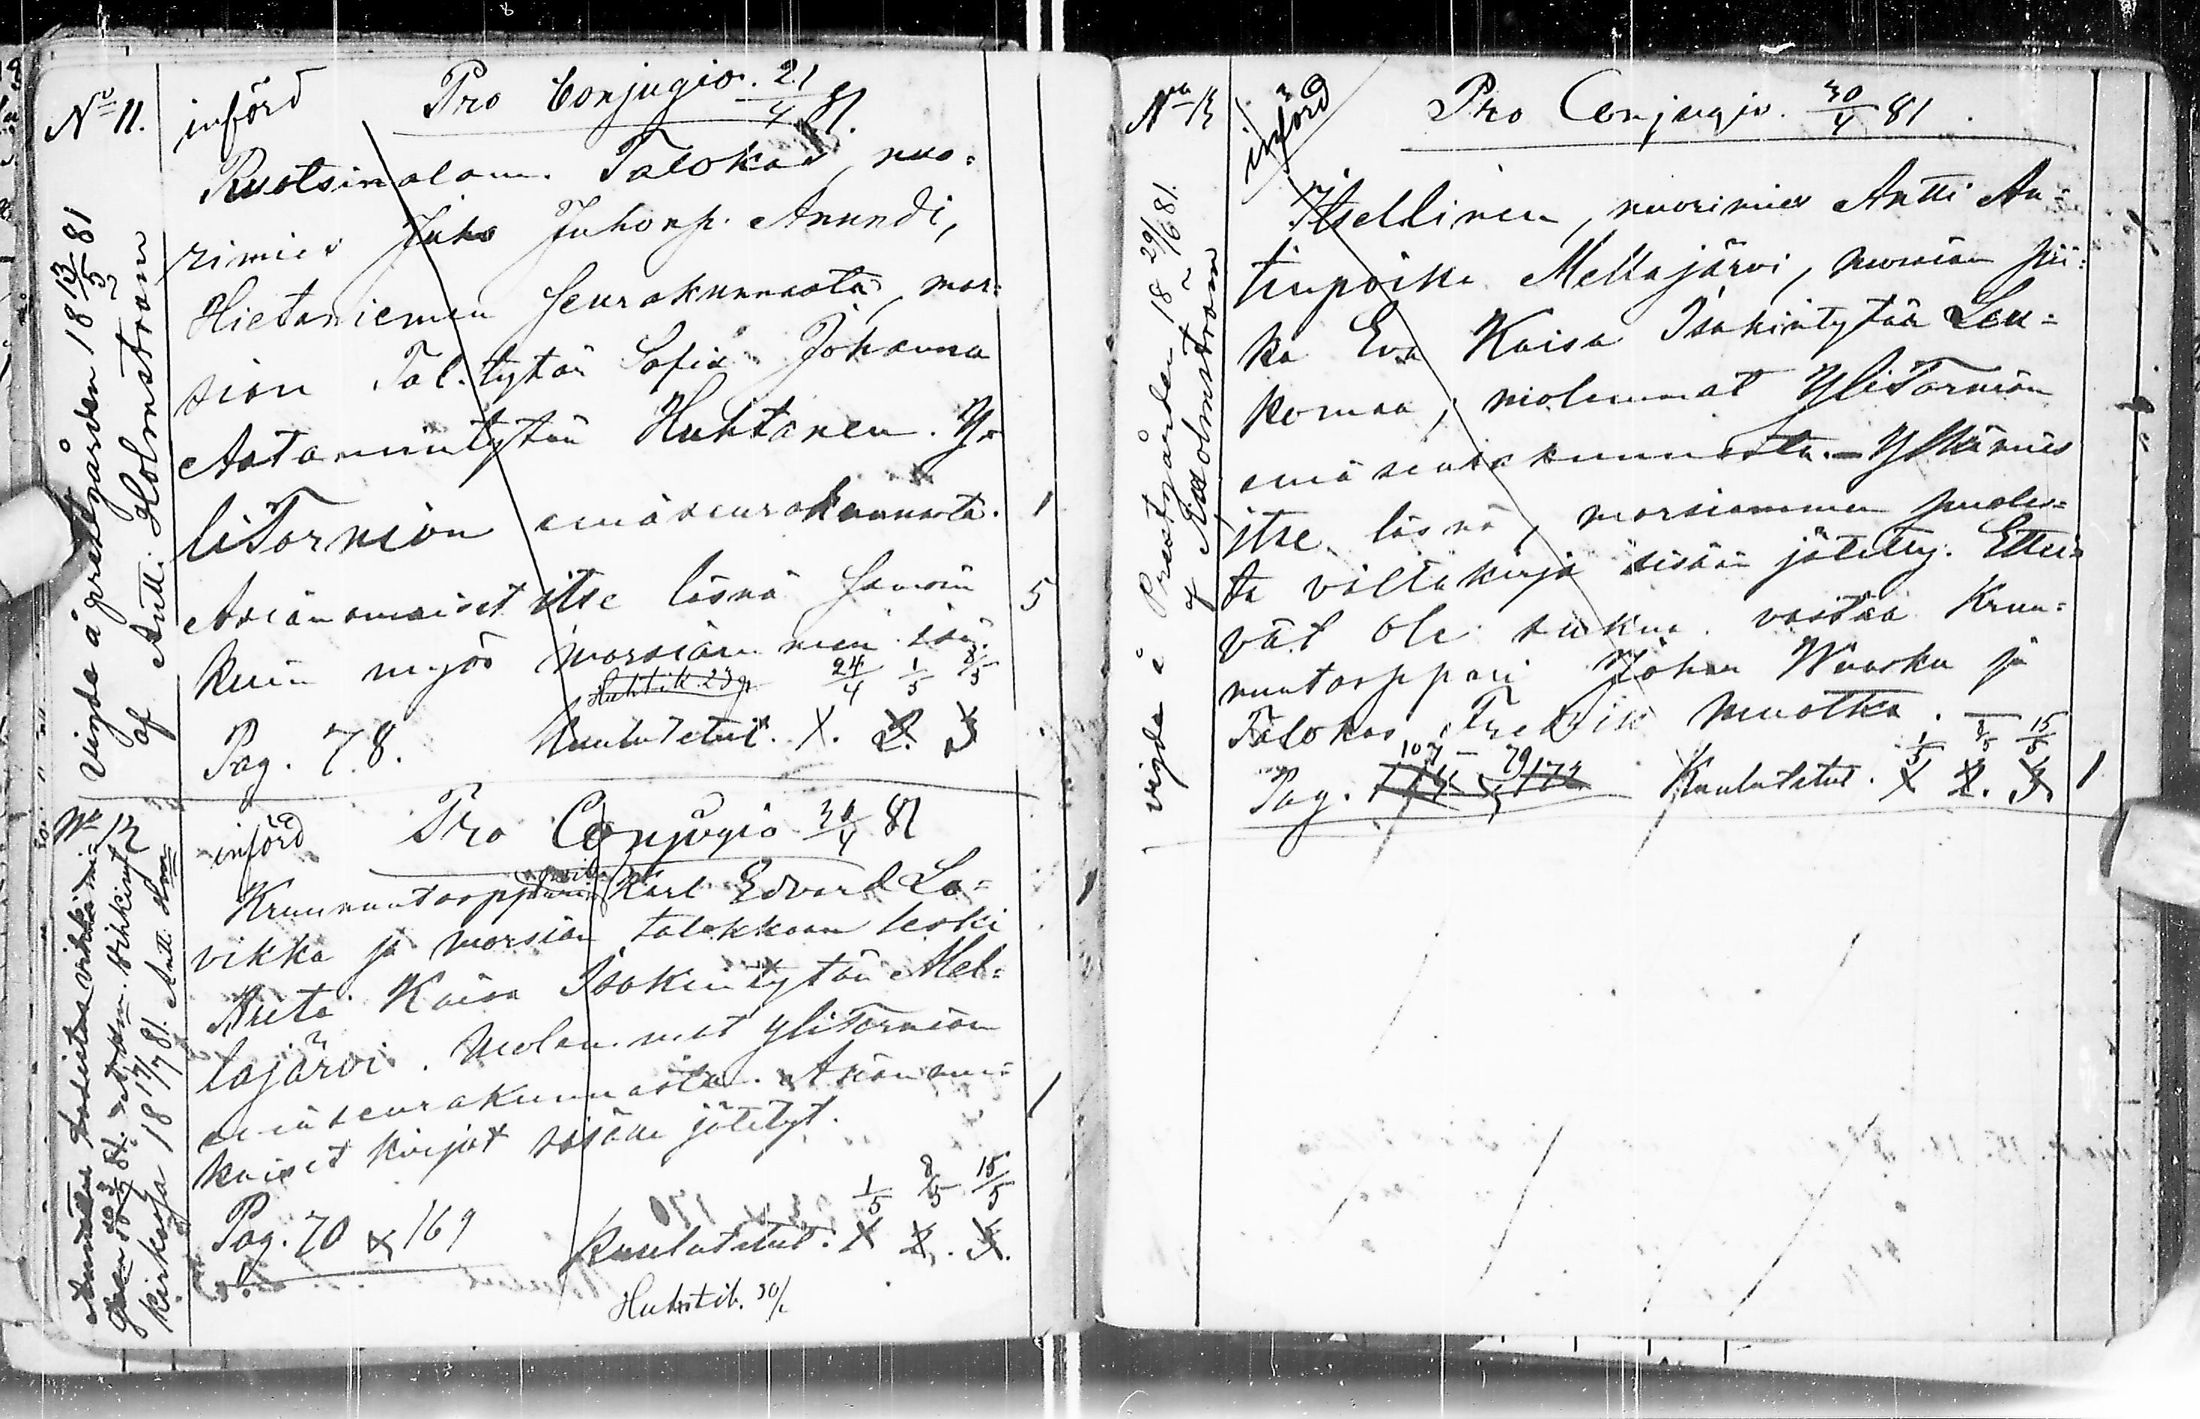 No 11.
införd Pro Conjugio. 21/4 81.
Ruotsinalam. Talokas, nuo=
rimies Juho Juhonp. Anundi,
Hietaniemen seurakunnasta, mor=
sian Tal. tytär Sofia Johanna
Aatamintytär Huhtanen. Y=
liTornion emäseurakunnasta. 1
Asianomaiset itse läsnä samoin 5
kuin myös morsiammen isä.
Huhtik. 23 p. 24/4 1/5 8/5
Pag. 78. Kuulutetut. 1. 2. 3
Vigde å prestgården 18 13/5 81
af Antti Holmström
No 12
införd Pro Conjugio 30/4 81
Kruununtorppari Karl Edvard La=
vikka ja morsian talokkaan leski
Kaisa Isakintytär Mel=
lajärvi. Molemmat YliTornion
emäseurakunnasta. Asianmu= 1
kaiset kirjat sisään jätetyt.
1/5 8/5 15/5
Pag. 70 & 169 Kuulutetut. 1 2. 3.
Huhtik. 30/
kirkossa 18 17/7 81. Antt. Hm
No 13
införd Pro Conjugio. 30/4 81.
Itsellinen, nuorimies Antti An=
tinpoika Mellajärvi, morsian pii=
ka Eva Kaisa Isakintytär Leu=
komaa, molemmat YliTornion
emäseurakunnasta. – Ylkämies
itse läsnä, morsiammen puoles=
ta valtakirja sisään jätetty. Ettei
vät ole sukua vastaa Kruu=
nuntorppari Johan Waaska ja
Talokas Fredrik Muotka.
107 – 79 1/5 8/5 15/5
Pag. 174 & 172 Kuulutetut. 1 2. 3. 1
vigde i Prestgården 18 29/6 81.
af A Holmström